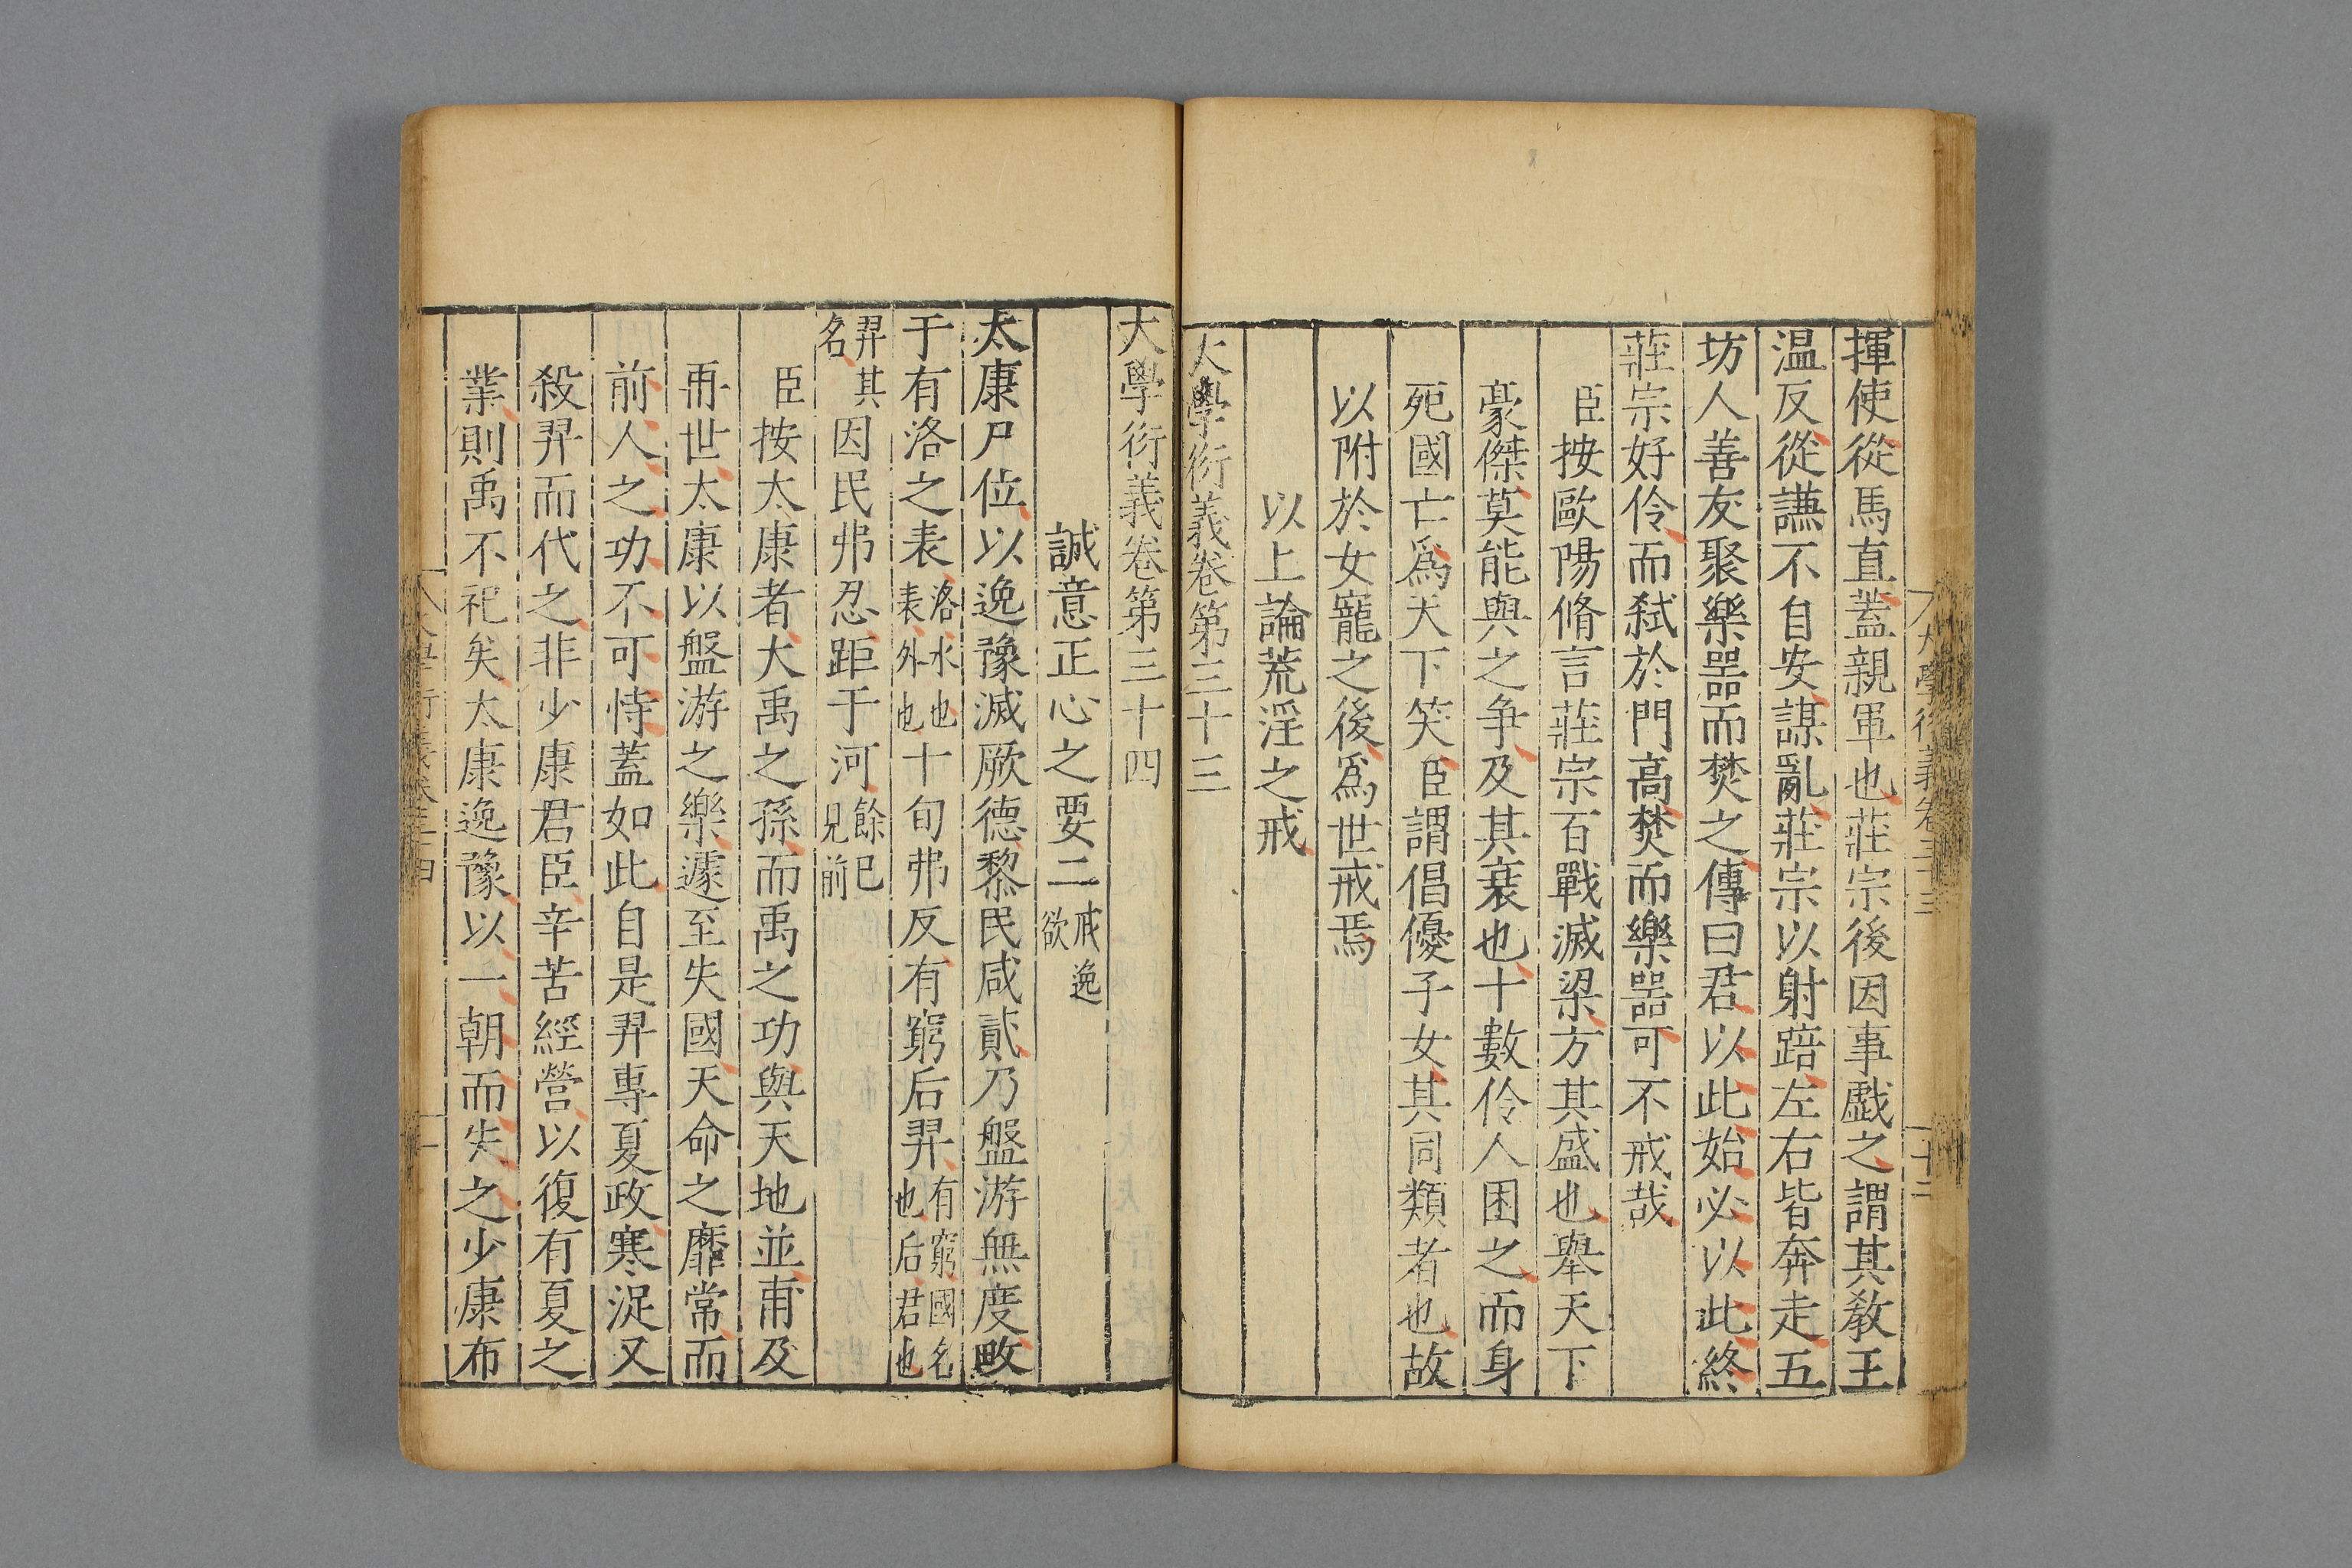 揮使從馬直蓋親軍也莊宗後因事戲之謂其教王
温反從謙不自安謀亂莊宗以射踣左右皆奔走五
坊人善友聚樂噐而焚之傳曰君以此始必以此終
莊宗好伶而弑於門高焚而樂噐可不戒哉
臣按歐陽脩言莊宗百戰滅梁方其盛也舉天下
豪傑莫能與之争及其衰也十數伶人困之而身
死國亡爲天下笑臣謂倡優子女其同類者也故
以附於女寵之後爲世戒焉
以上論荒淫之戒
大學衍義卷第三十三
大學衍義卷第三十四
誠意正心之要二戒逸欲
太康尸位以逸豫滅厥德黎民咸貳乃盤游無度畋
于有洛之表洛水也表外也十旬弗反有窮后羿有窮國名也后君也
羿其名因民弗忍距于河餘已見前
臣按太康者大禹之孫而禹之功與天地並甫及
再世太康以盤游之樂遽至失國天命之靡常而
前人之功不可恃蓋如此自是羿專夏政寒浞又
殺羿而代之非少康君臣辛苦經營以復有夏之
業則禹不祀矣太康逸豫以一朝而失之少康布